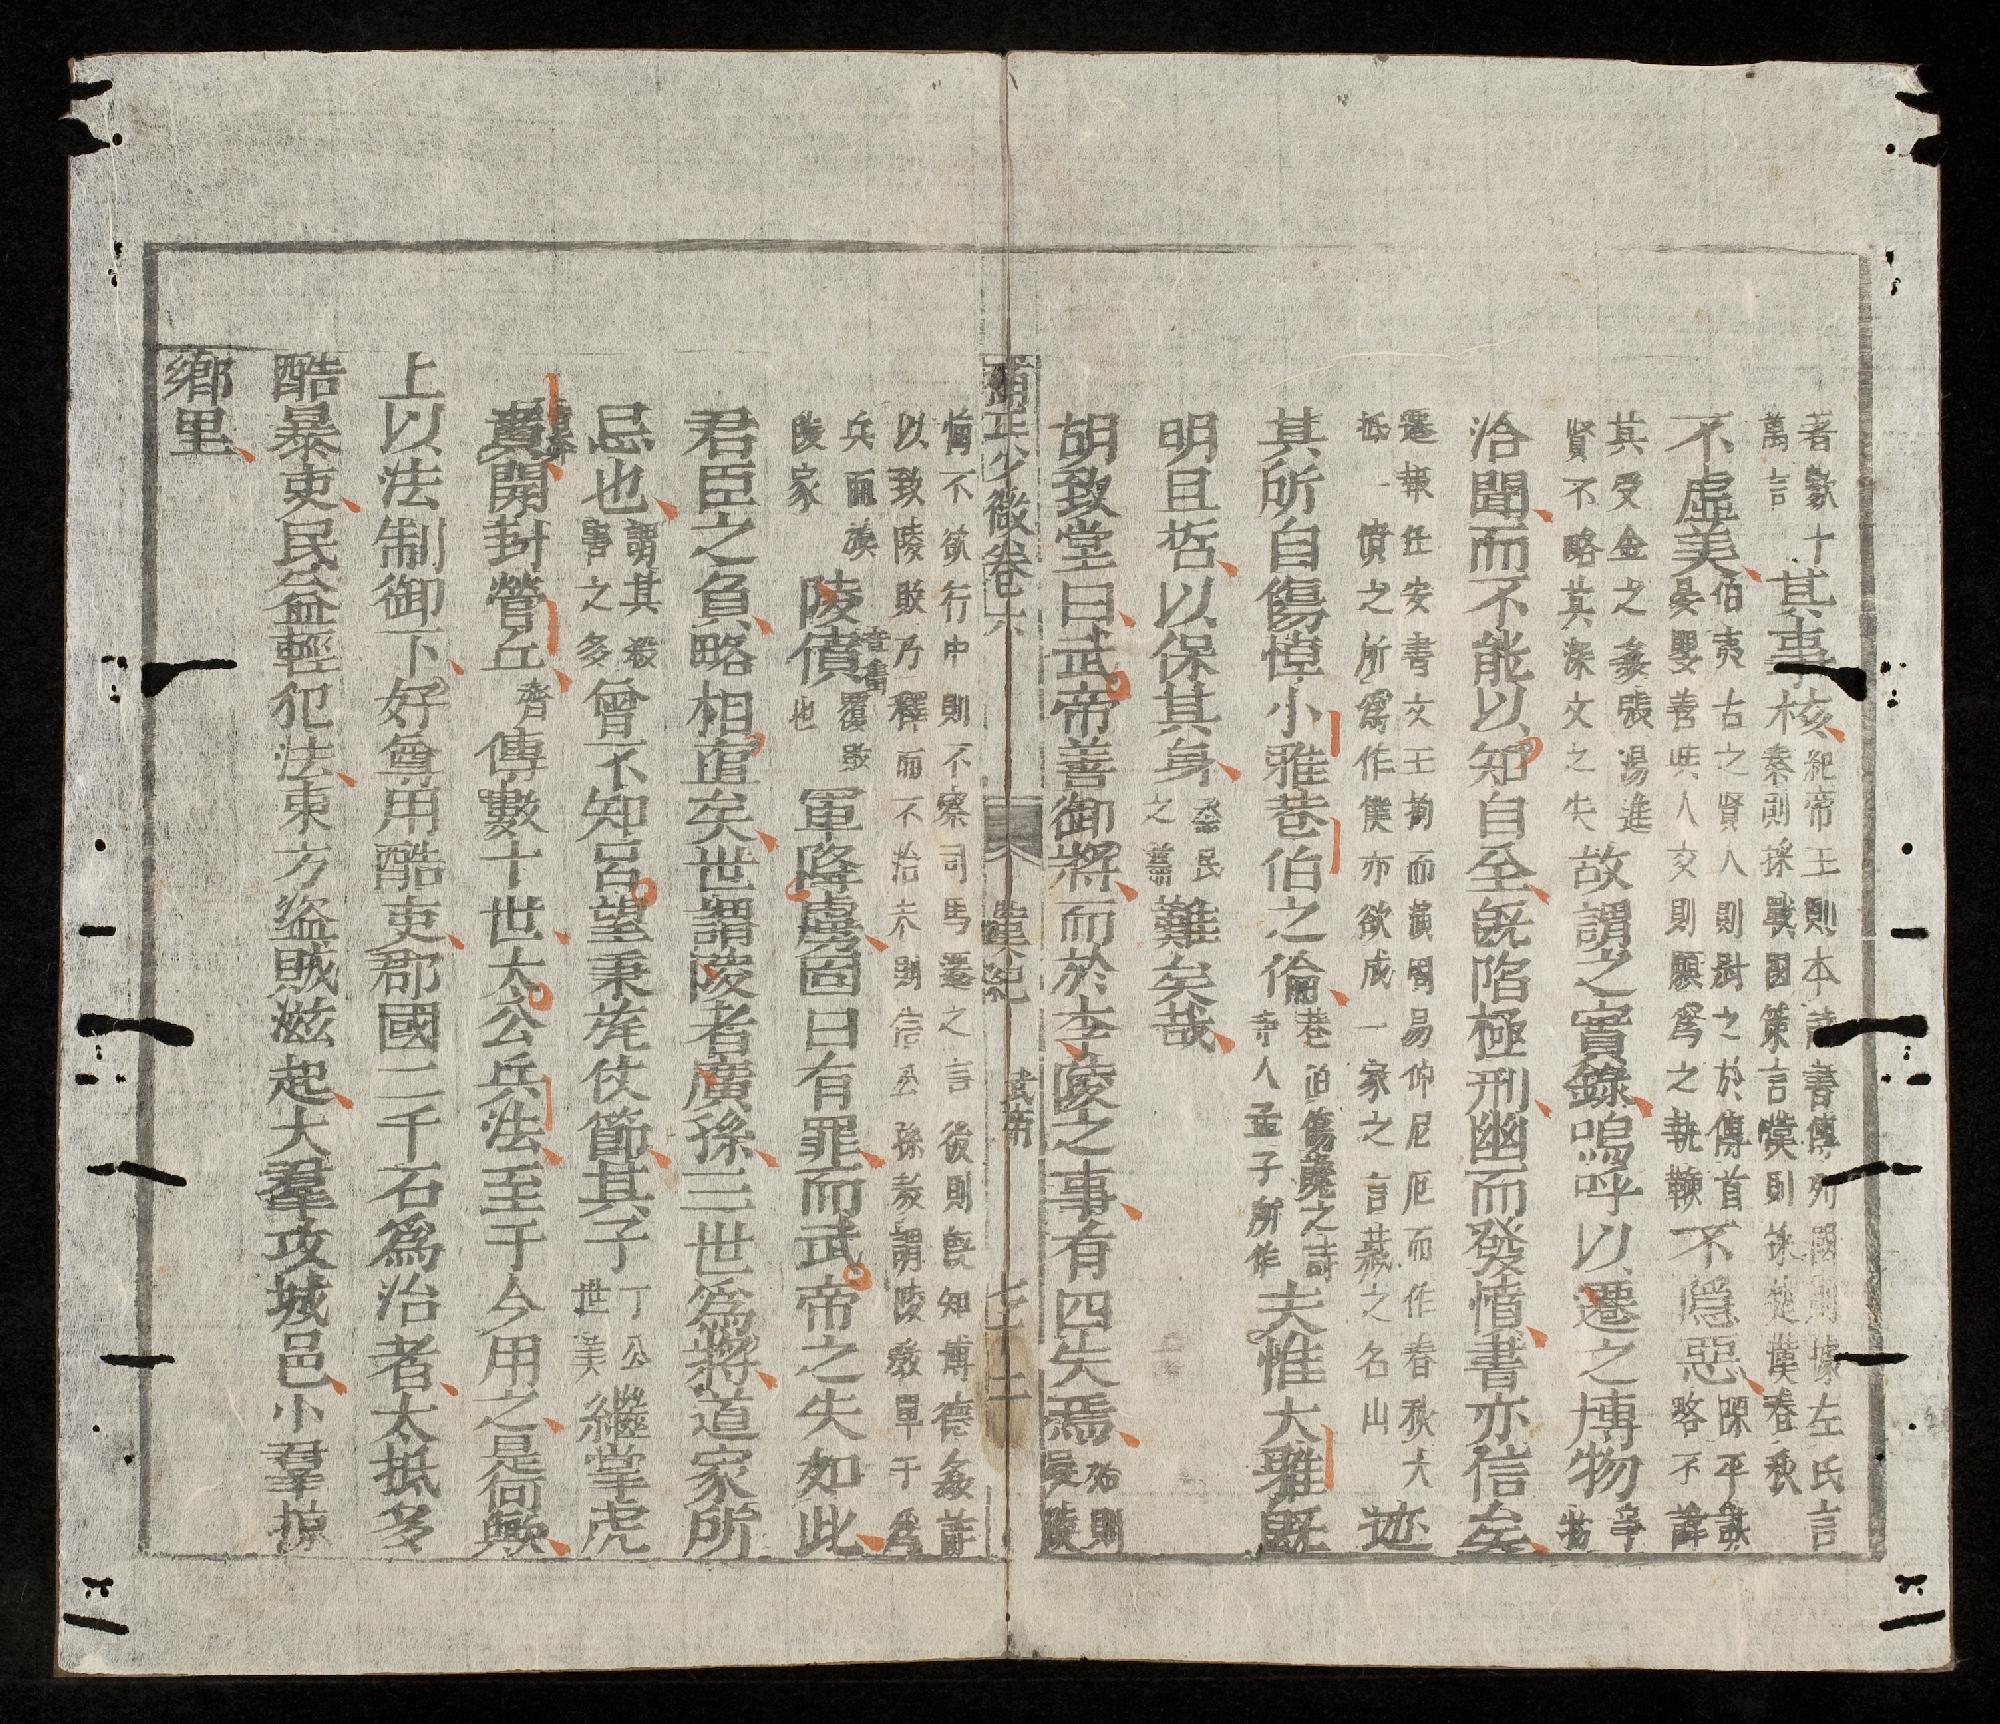 著數十萬言其事核紀帝王則本詩書傳列國則據左氏言木秦則採戰國策言漢則採楚漢春秋
不虛美伯夷古之賢人則尉之於傳首晏嬰善與人交則願爲之執鞭不隱惡陳平謀略不諱
其受金之姦張湯進賢不略其深文之失故謂之實錄嗚呼以遷之博物
洽聞而不能以知自全旣陷極刑幽而發憤書亦信矣
遷報任安書文王拘而演周易仲尼厄而作春秋大抵一憤之所爲作僕亦欲成一家之言藏之名山迹
其所自傷悼小雅巷伯之倫巷伯傷讒之詩寺人孟子所作夫惟大雅旣
明且哲以保其身烝民之篇難矣哉
胡致堂曰武帝善御將而於李陵之事有四失焉始則受陵
正少微卷之六 漢紀 武帝 七十二
悔不欲行中則不察司馬遷之言後則旣知博德姦詐以致陵敗乃釋而不治末則信公孫敖謂陵敎單于爲
兵而族陵家陵僨音奮覆敗也軍降虜固曰有罪而武帝之失如此
君臣之負略相直矣世謂陵者廣孫三世爲將道家所
忌也謂其殺害之多曾不知呂望秉旄仗節其子丁公世美繼掌虎
賁開封營丘齊傳數十世太公兵法至于今用之是何歟
上以法制御下好尊用酷吏郡國二千石爲治者太抵多
酷暴吏民益輕犯法東方盜賊滋起大羣攻城邑小羣掠
鄉里